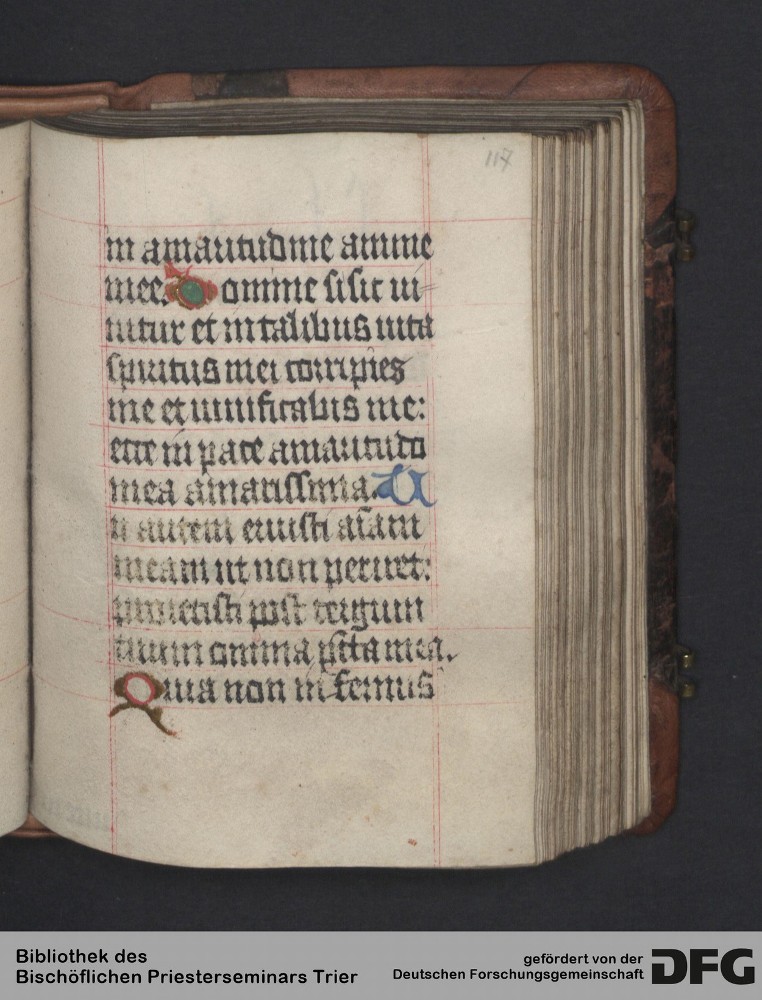 117
in amaritudine anime
mee. Domine si sic ui-
uitur et in talibus uita
spiritus mei corripies
me et uiuificabis me:
ecce in pace amaritudo
mea amarissima. Tu
autem eruisti aīam
meam ut non periret:
proiecisti post tergum
tuum omnia pctā mea.
Quia non infernus
Bibliothek des
Bischöflichen Priesterseminars Trier
gefördert von der
Deutschen Forschungsgemeinschaft
DFG